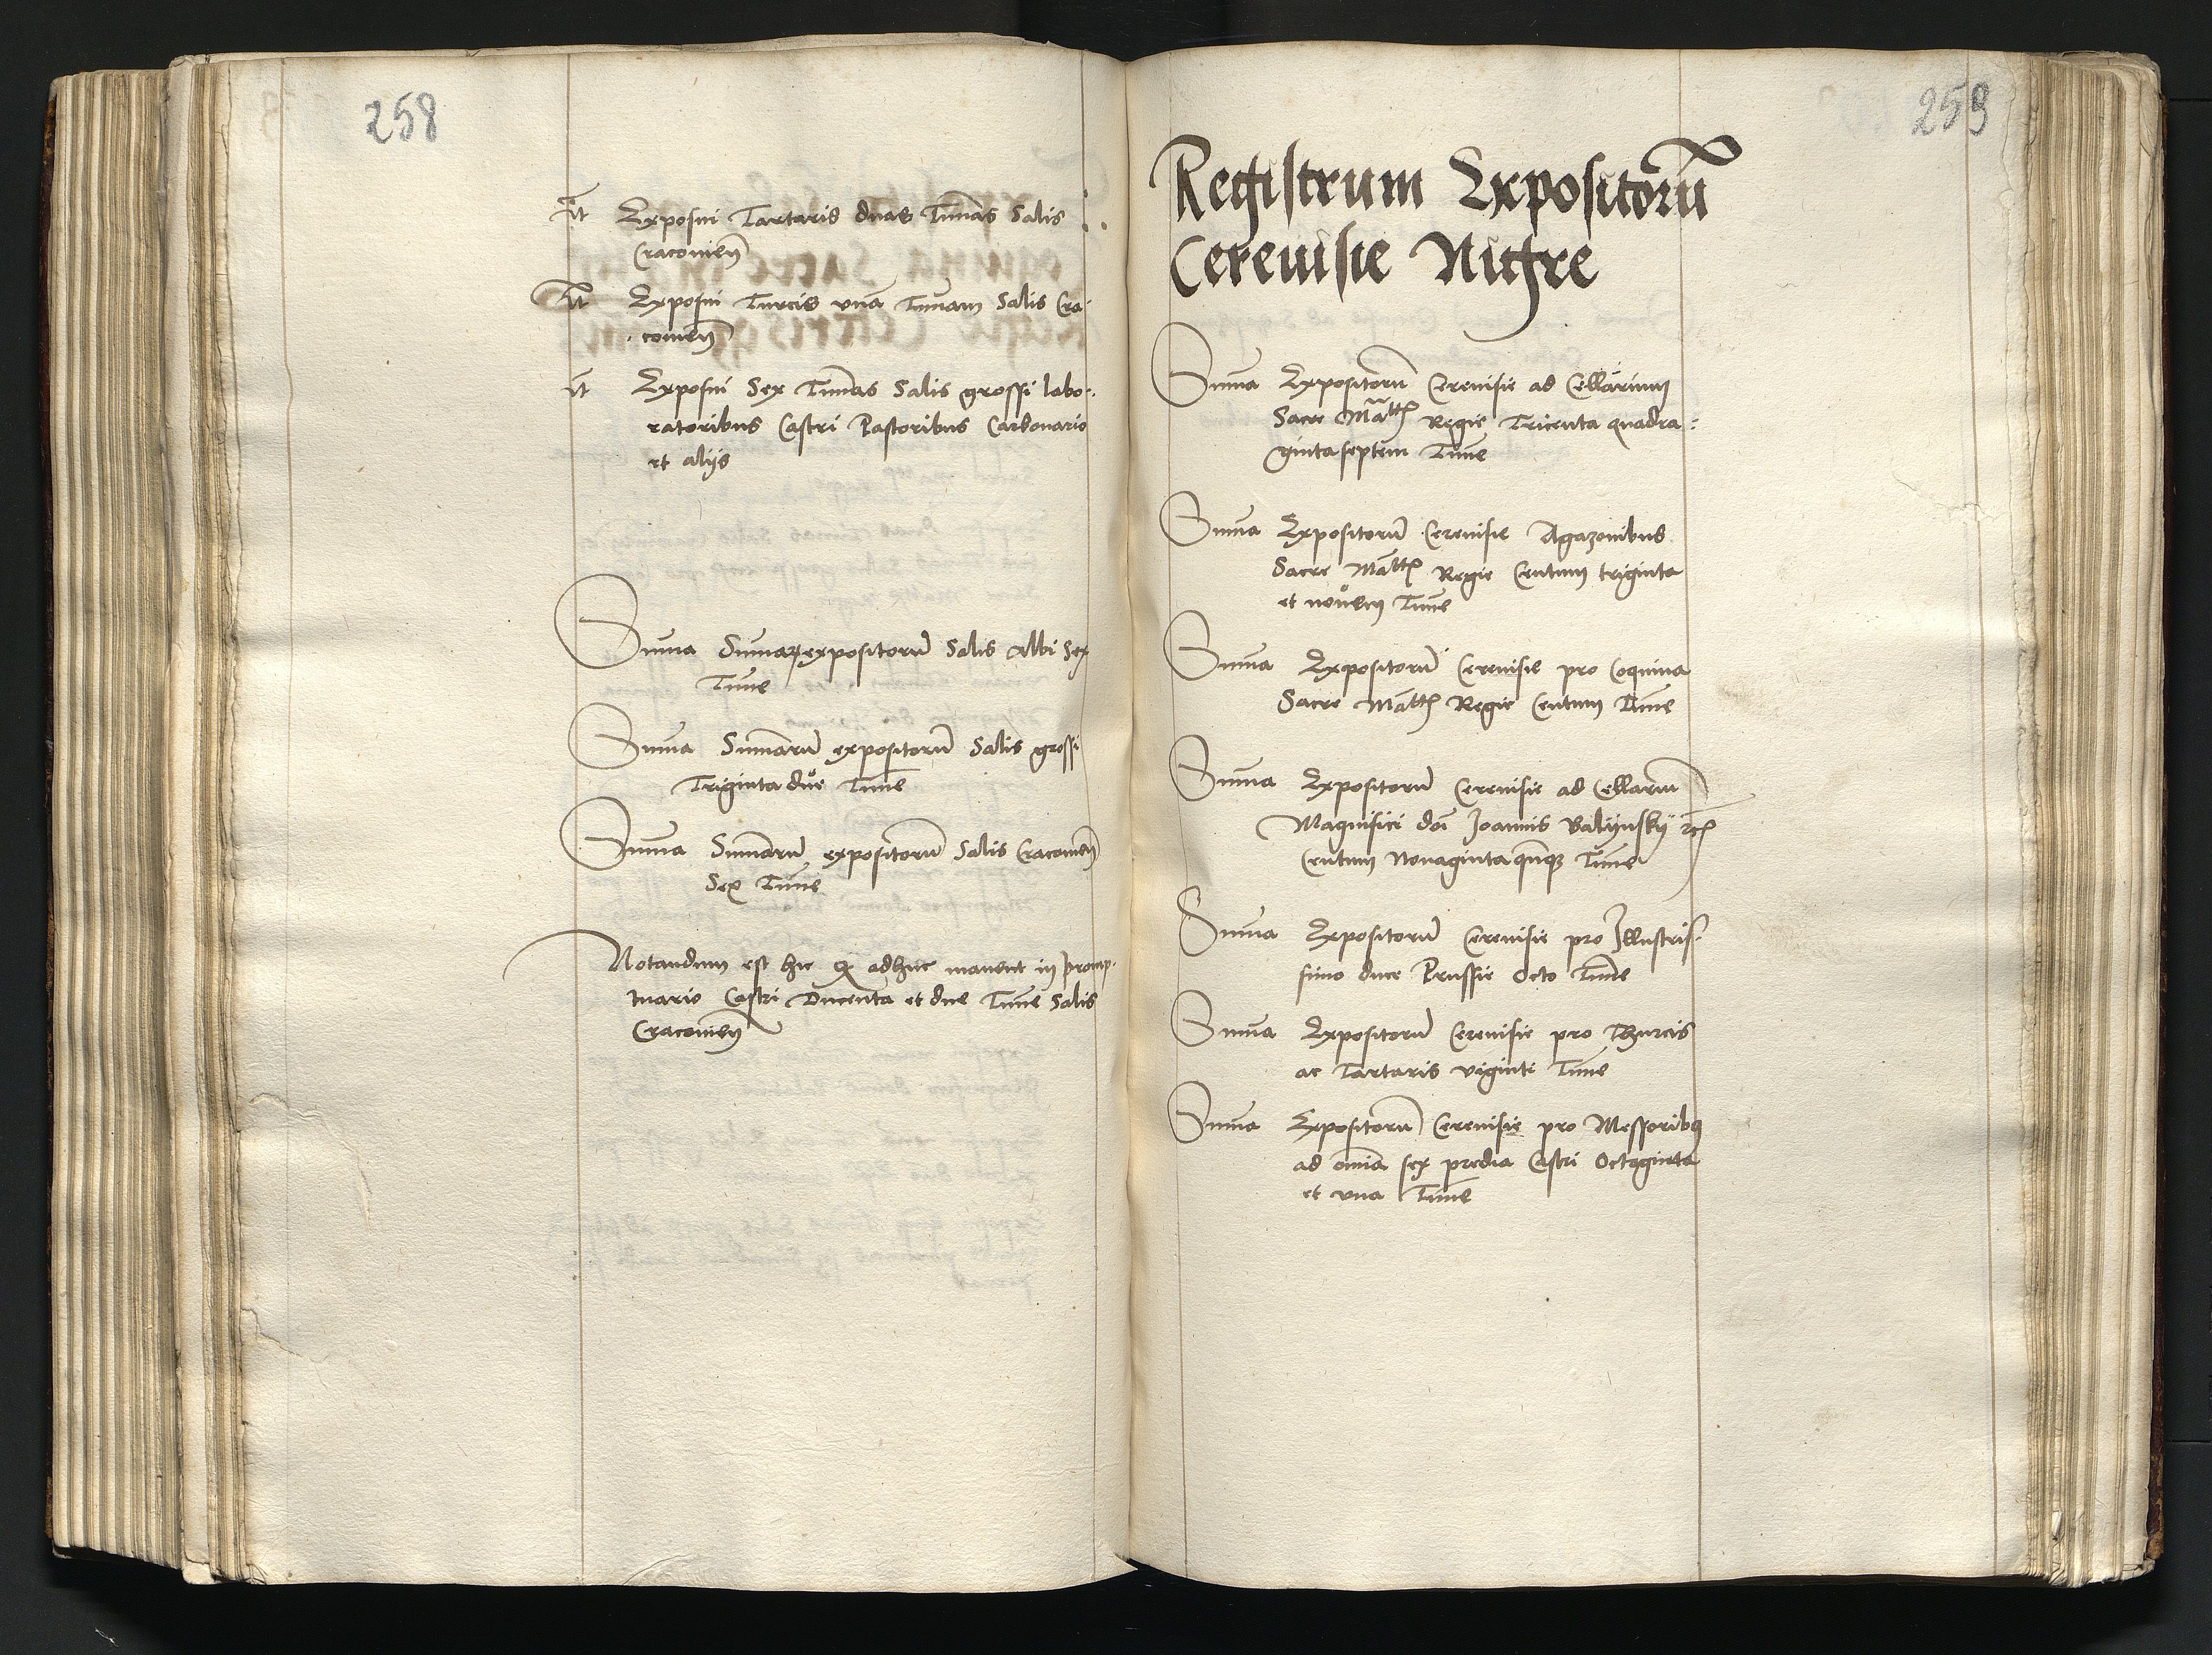 258
It Exposui Tartaris duas Tunas Salis
Cracovien
It Exposui Turcis vna Tunam Salis Cra-
covien
It Exposui Sex Tunas Salis grossi labo-
ratoribus Castri Pastoribus Carbonario
et alijs
Suma Sumaꝝ expositorū Salis Albi Sex
Tune
Suma Sumarū expositorū Salis grossi
Triginta due Tune
Suma Sumarū expositorū Salis Cracovien
Sex Tune
Notandum est hic ꝙ adhuc manent in promp-
tuario Castri Ducenta et due Tune Salis
Cracovien
259
Registrum Expositorū
Cereuisie
Suma Expositorū Cereuisie ad Cellarium
Sacre Mattis Regie Tricenta quadra-
ginta septem Tune
Suma Expositorū Cereuisie Agazonibus
Sacre Mattis Regie Centum triginta
et nouem Tune
Suma Expositorū Cereuisie pro Coquina
Sacre Mattis Regie Centum Tune
Suma Expositorū Cereuisie ad Cellariū
Magnifici doi Joannis Balijnskij
Centum Nonaginta qnqꝫ Tune
Suma Expositorū Cereuisie pro Illustris-
simo duce Prussie Octo Tune
Suma Expositorū Cereuisie pro Thurcis
ac Tartaris viginti Tune
Suma Expositorū Cereuisie pro Messoribꝫ
ad omīa sex predia Castri Octoginta
et vna Tune